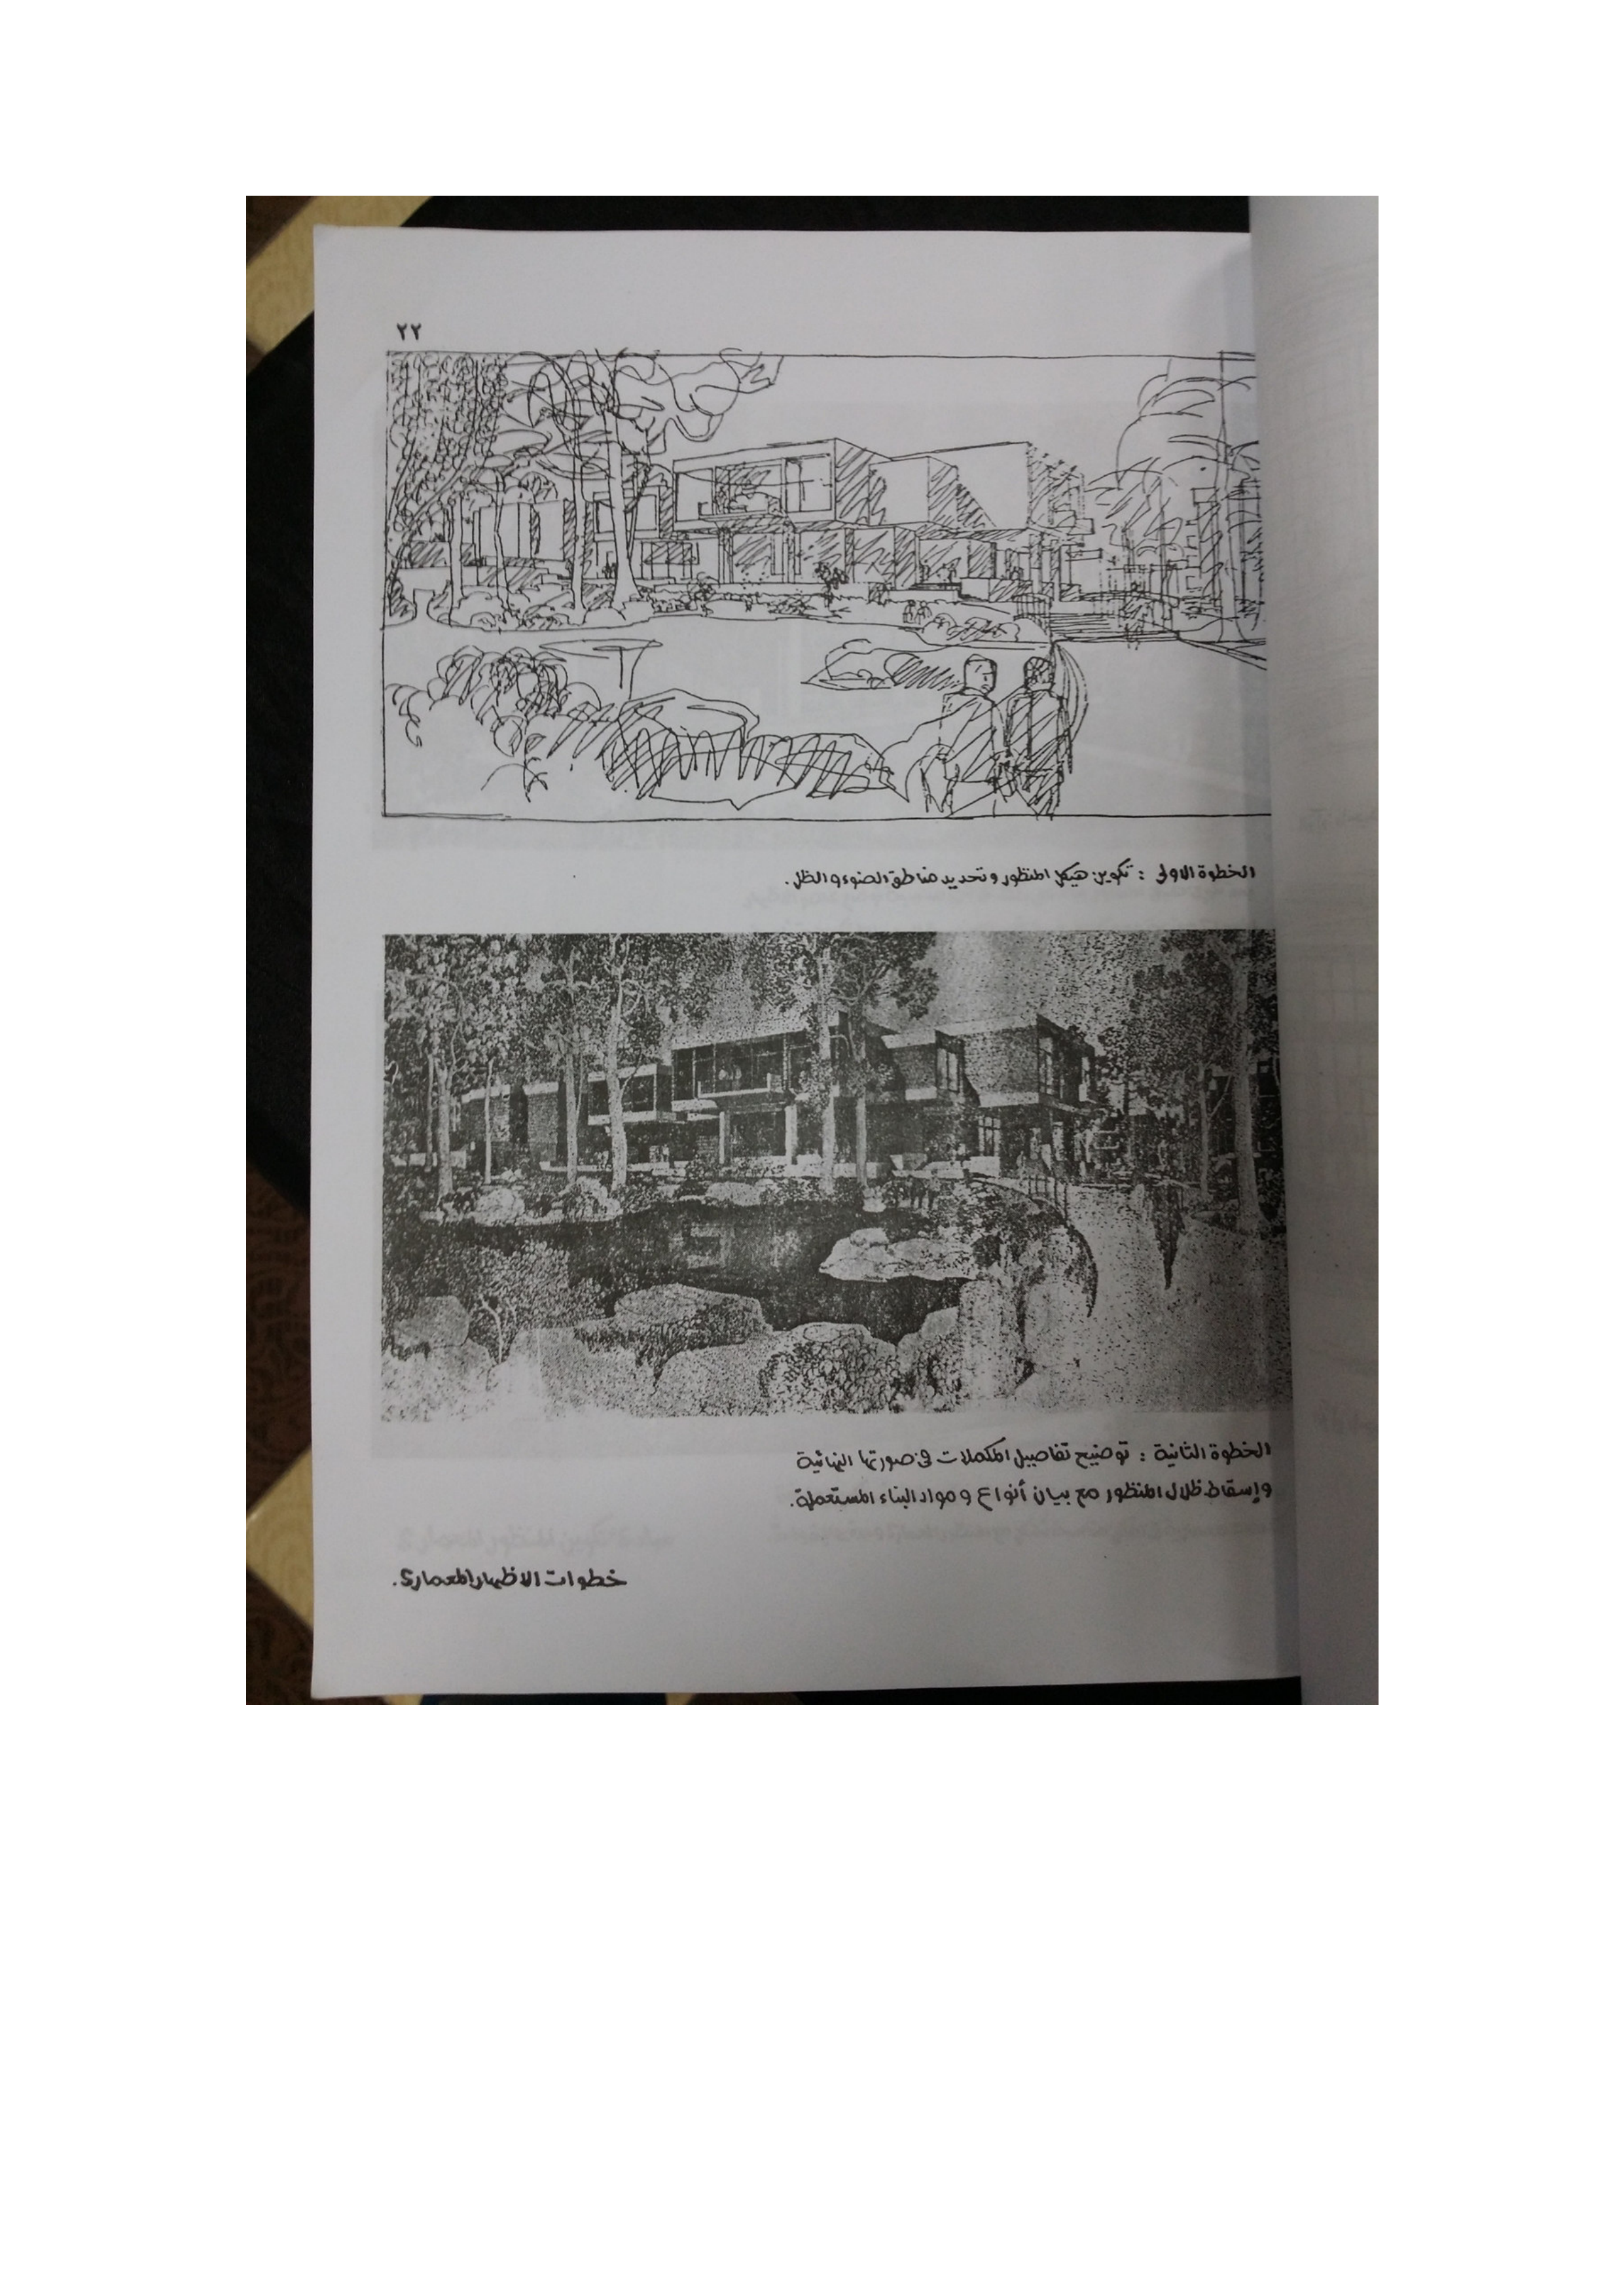 ٢٢
الخطوة الاولى : تكوين هيكل المنظور وتحديد مناطق الضوء والظل.
الخطوة الثانية : توضيح تفاصيل المكملات في صورتها النهائية
وإسقاط ظلال المنظور مع بيان أنواع ومواد البناء المستعملة.
خطوات الاظهار المعماري.